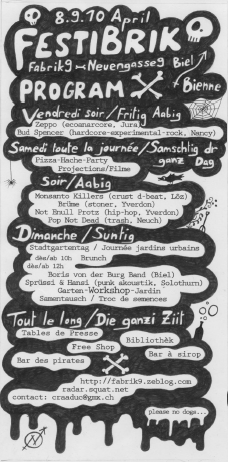 8.9.10 April
FESTIBRIK
Fabrik9 - Neuengasse9 Biel
Bienne
PROGRAM
Vendredi soir / Fritig Aabig
Zeppo (ecoanarcore, Jura)
Bud Spencer (hardcore-experimental-rock, Nancy)
Samedi toute la journée / Samschtig dr
ganz Dag
Pizza-Hache-Party
Projections/Filme
Soir / Aabig
Monsanto Killers (crust d-beat, Löz)
Brüme (stoner, Yverdon)
Not Enull Protx (hip-hop, Yverdon)
Pop Not Dead (trash, Neuch)
Dimanche / Suntig
Stadtgartentag / Journée jardins urbains
dès/ab 10h Brunch
dès/ab 12h
Boris von der Burg Band (Biel)
Sprüssi & Hansi (punk akoustik, Solothurn)
Garten-Workshop-Jardin
Samentausch / Troc de semences
Tout le long / Die ganzi Ziit
Tables de Presse
Bibliothèk
Free Shop
Bar à sirop
Bar des pirates
http://fabrik9.zeblog.com
radar.squat.net
contact: crnaduc@gmx.ch
please no dogs...